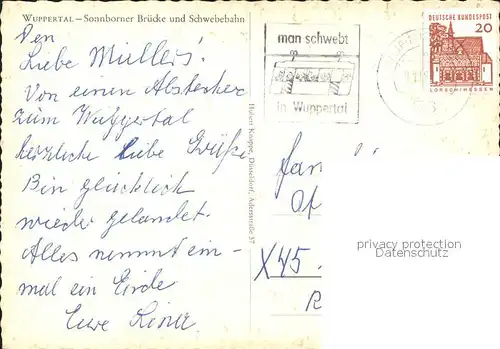 WUPPERTAL – Sonnborner Brücke und Schwebebahn
Den
Liebe Müllers!
Von einem Abstecher
zum Wuppertal
herzliche liebe Grüße
Bin glücklich
wieder gelandet.
Alles nimmt ein-
mal ein Ende
Eure
Hubert Knippe, Düsseldorf, Adersstraße 57
man schwebt
in Wuppertal
DEUTSCHE BUNDESPOST
20
LORSCH/HESSEN
Fam
X45
privacy protection
Datenschutz